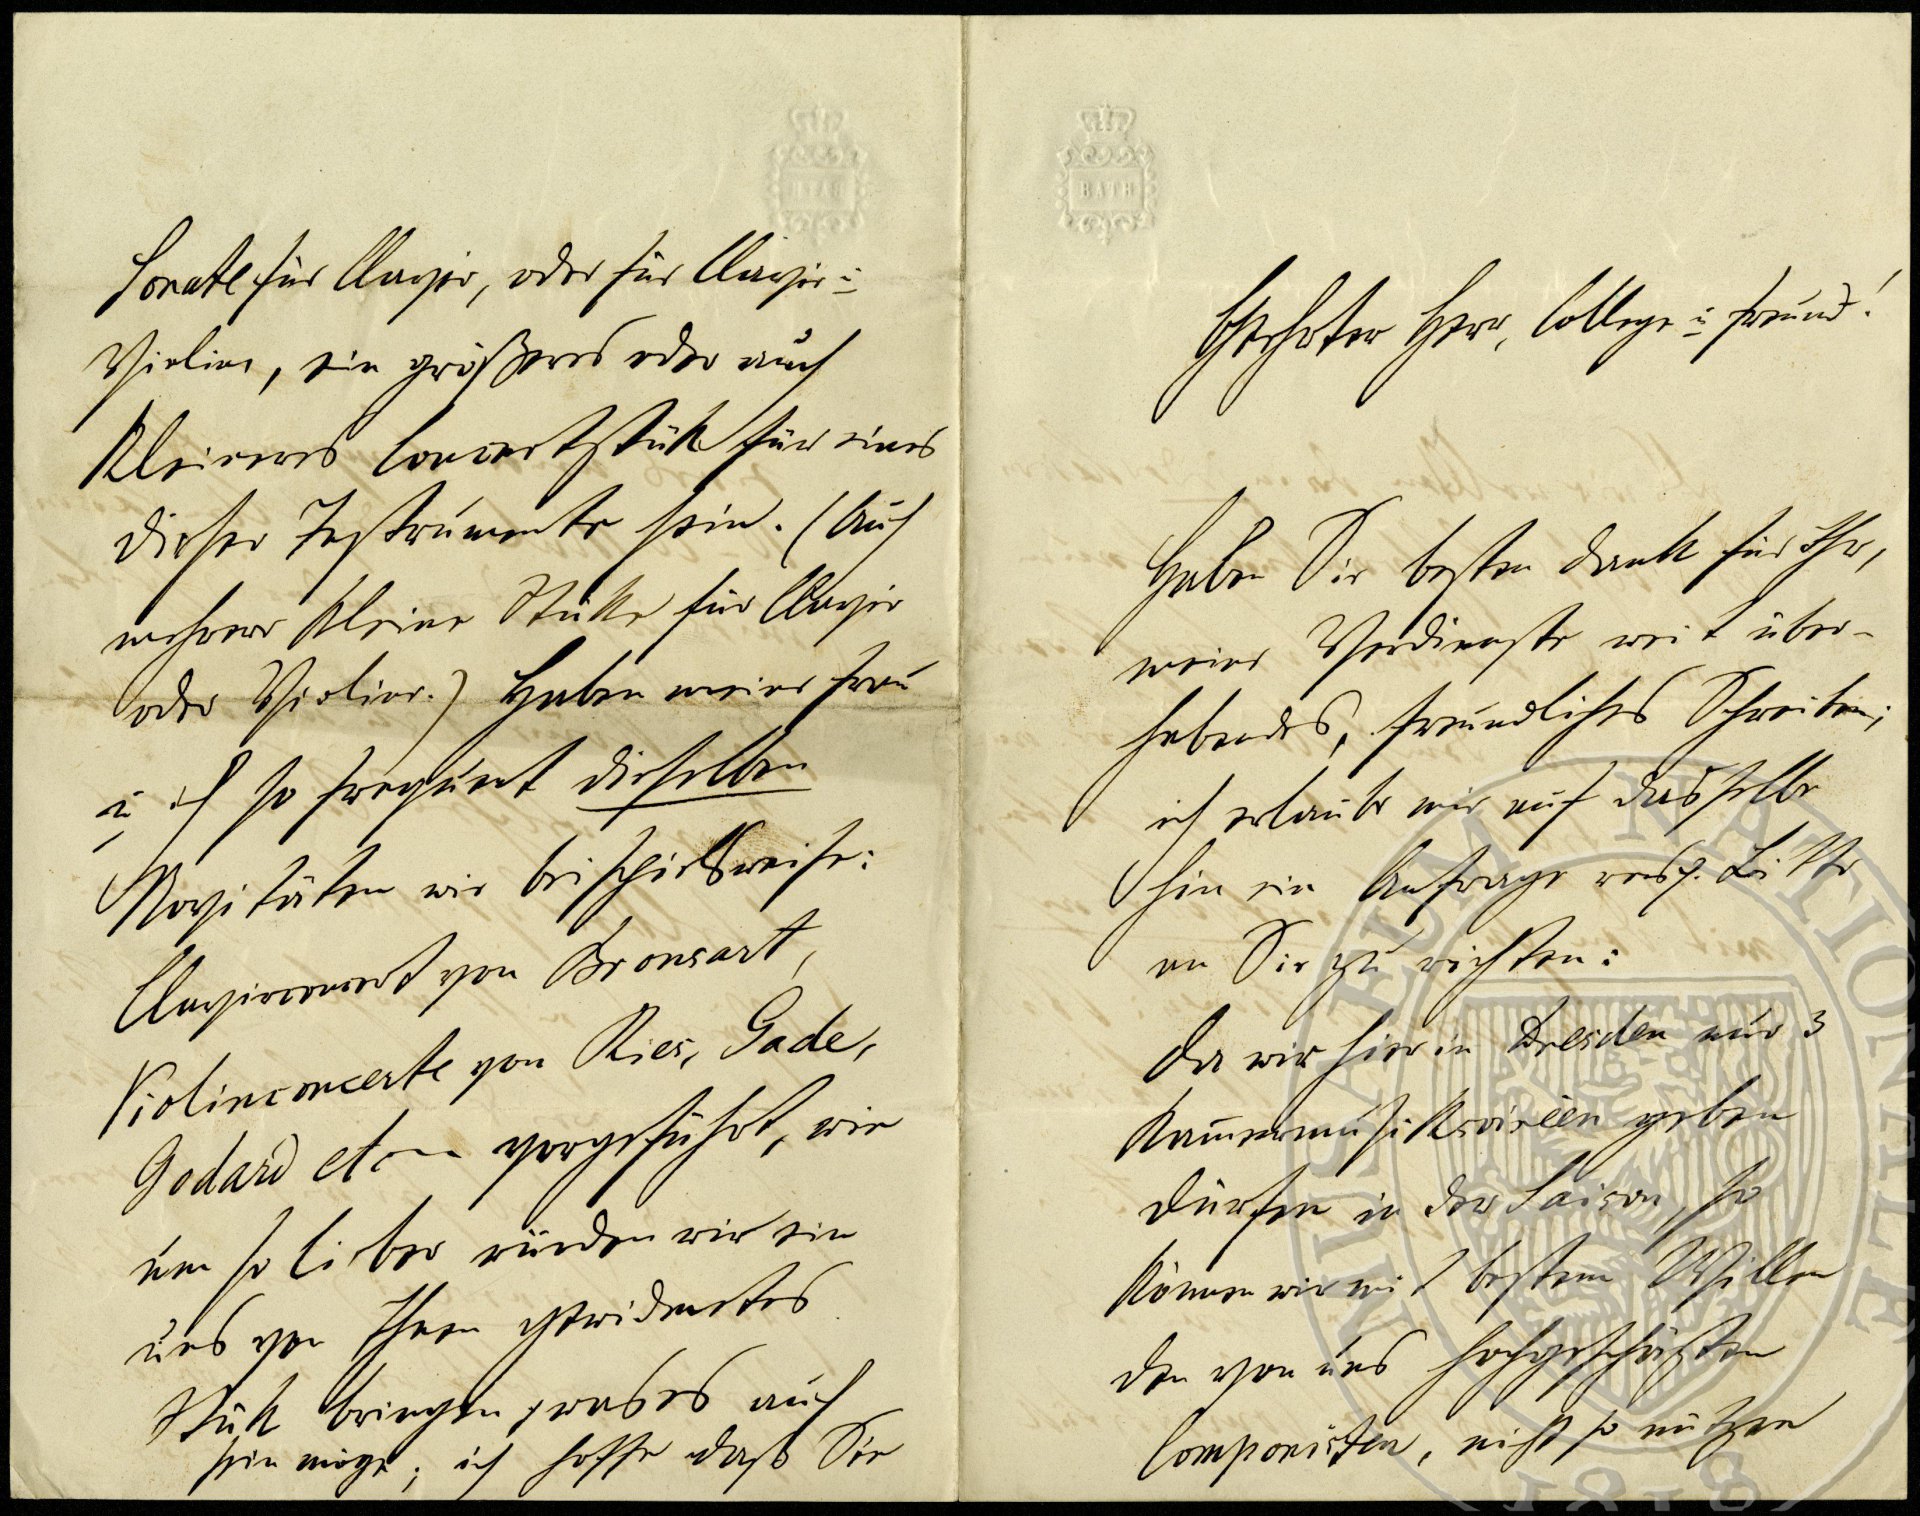 Geehrter Herr, College u Freund!
Haben Sie besten Dank für Ihr,
meine Verdienste weit über-
hebendes, freundliches Schreiben;
ich erlaube mir auf dasselbe
hin ein Anfrage resp. Bitte
an Sie zu richten:
Da wir hier in Dresden nur 3
Kammermusiksoiréen geben
dürfen in der Saison, so
können wir mit bestem Willen
den von uns hochgeschätzten
Componisten, nicht so nützen
Sonate für Clavier, oder für Clavier u
Violine, ein größeres oder auch
kleineres Concertstük für eines
dieser Instrumente sein. (Auch
mehrere kleine Stükke für Clavier
oder Violine.) Haben meine Frau
u. ich so frequent dieselben
Novitäten wie beispielsweise:
Clavierconcert von Bronsart,
Violinconcerte von Ries, Gade,
Godard etc vorgeführt, wie
um so lieber würden wir ein
uns von Ihnen gewidmetes
Stük bringen, was es auch
sein möge; ich hoffe daß Sie
BATH
BATH
MUSAEUM NATIONALE
1818